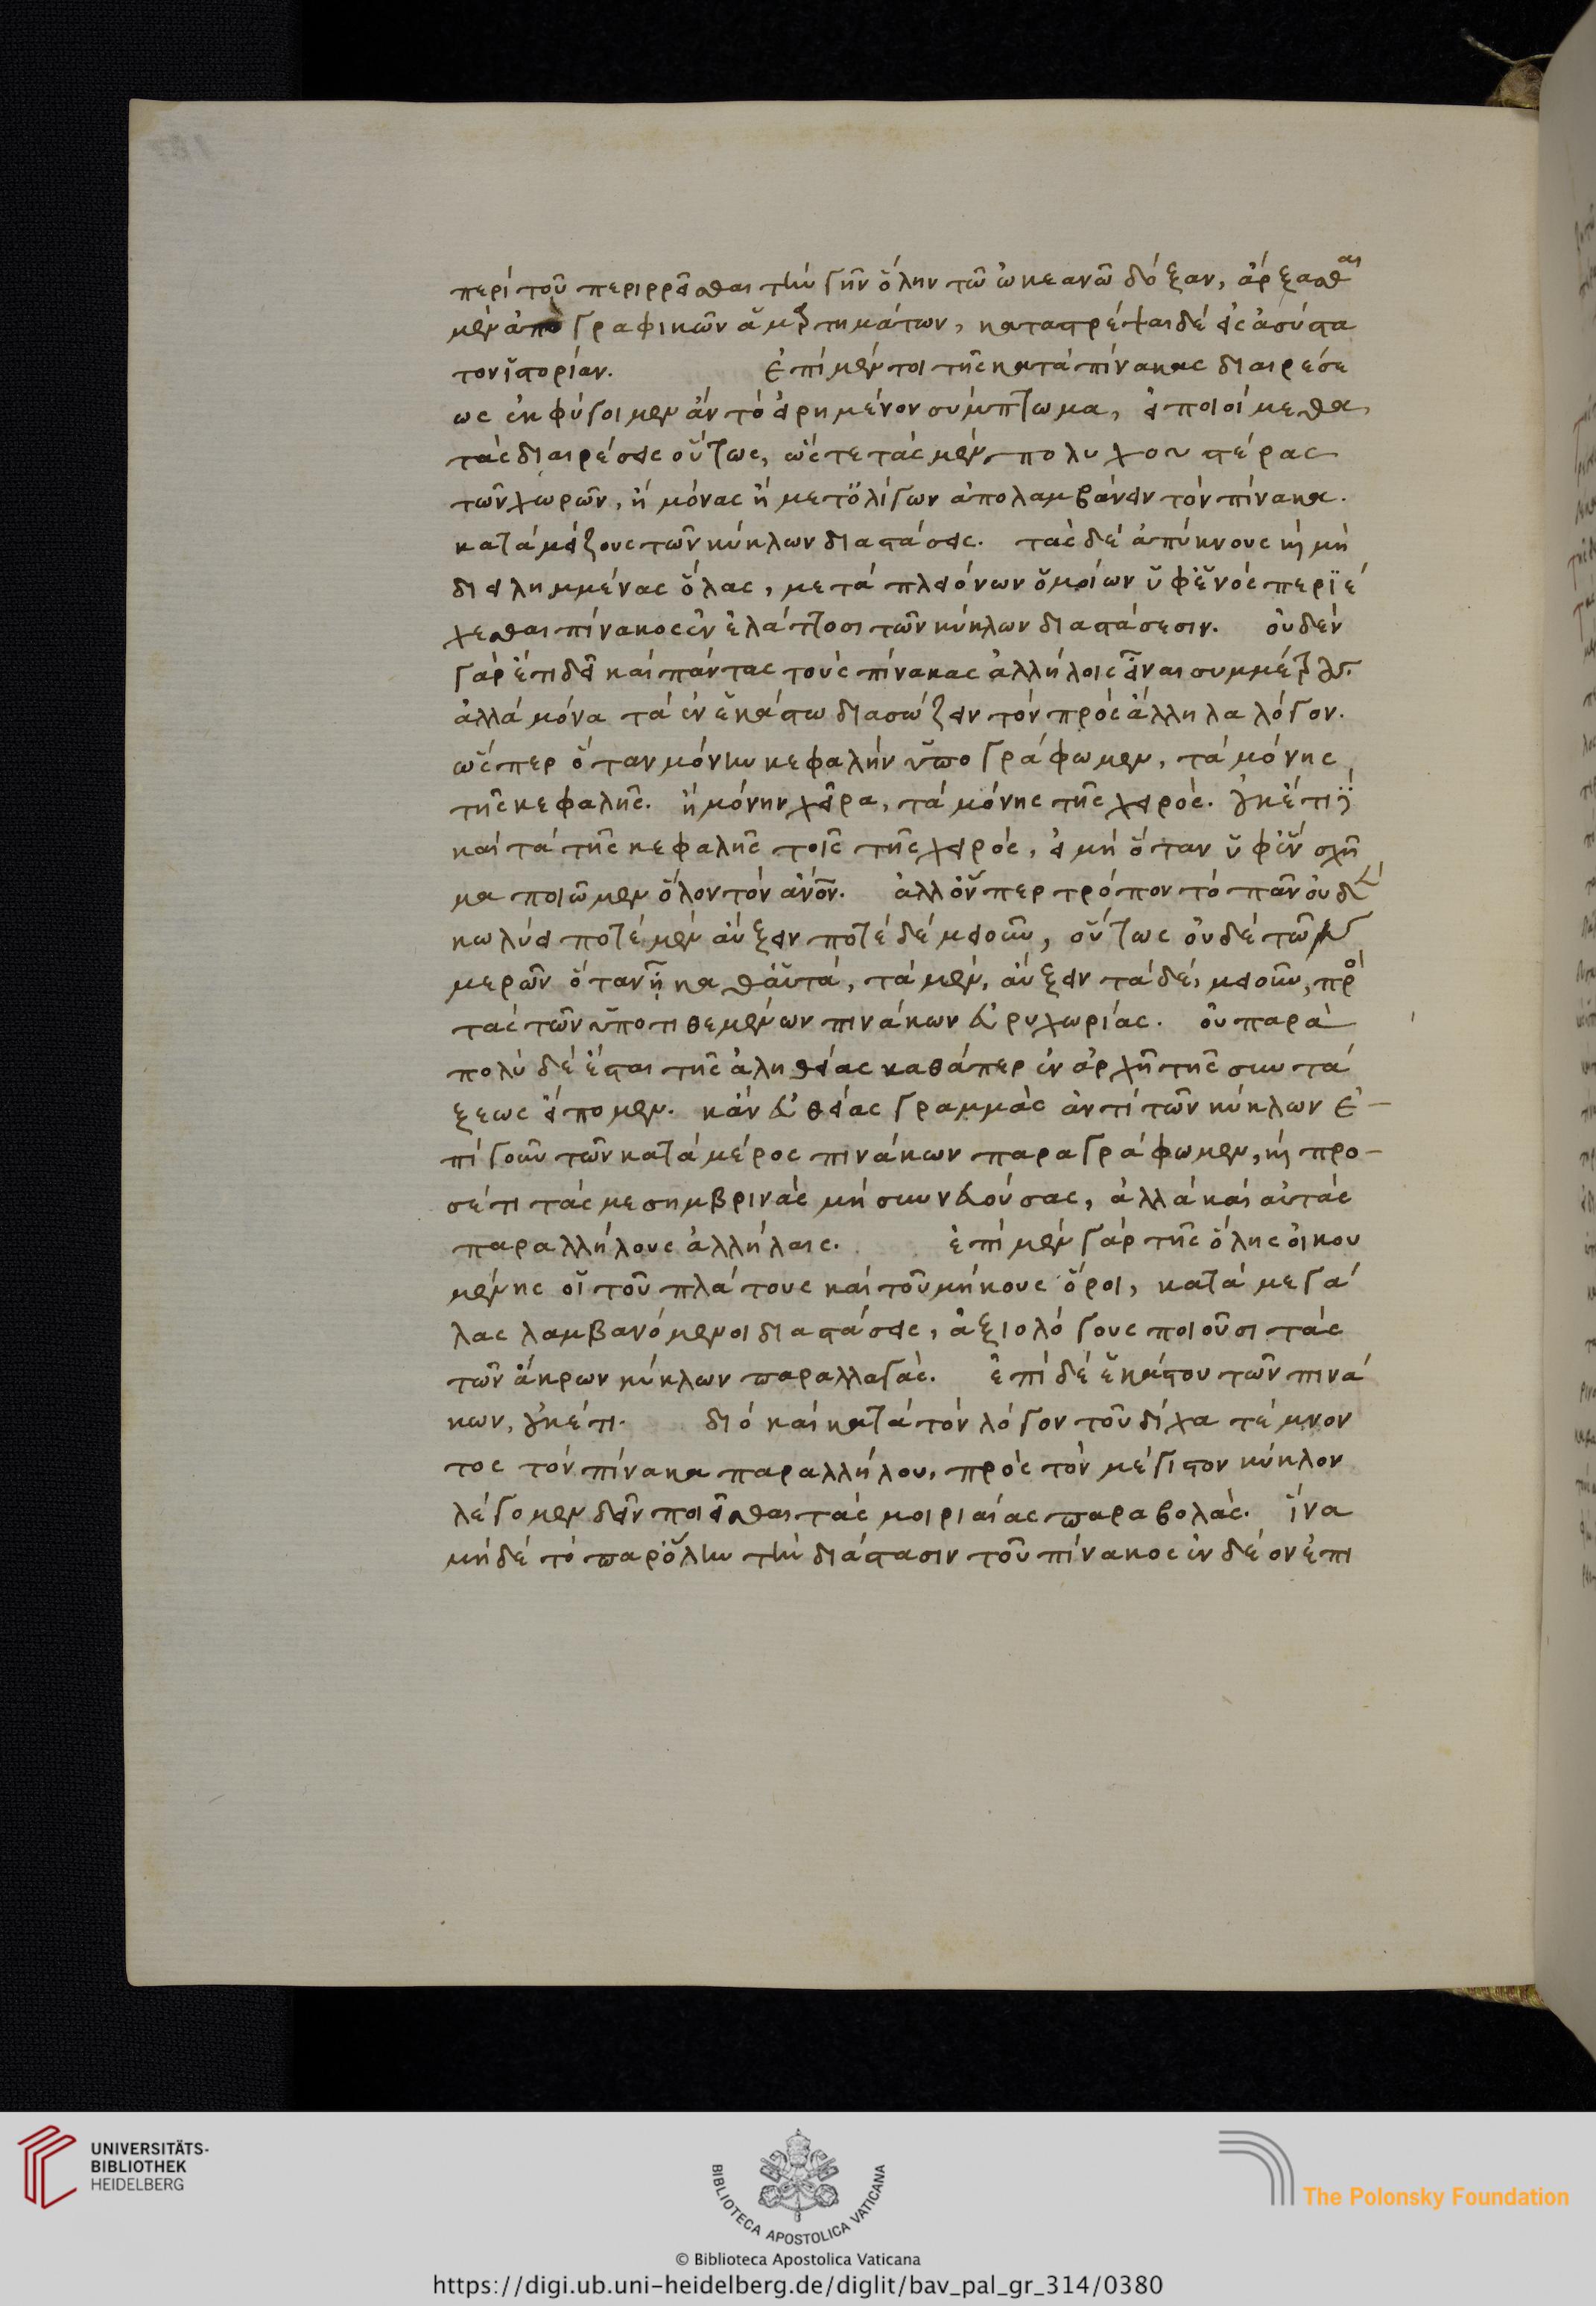 περὶ τοῦ περιρρεῖσθαι τὴν γῆν ὅλην τῶ ὠκεανῶ δόξαν, ἄρξασθαι
μὲν ἀπὸ γραφικῶν ἁμαρτημάτων, καταστρέψαι δὲ εἰς ἀσύστα
τον ἱστορίαν. Ἐπὶ μέν τοι τῆς κατὰ πίνακας διαιρέσε
ως ἐκφύγοιμεν ἂν τὸ εἰρημένον σύμπτωμα, εἰ ποιοίμεθα
τὰς διαιρέσεις οὕτως, ὥστε τὰς μὲν πολυχουστέρας
τῶν χωρῶν, ἢ μόνας ἢ μετ' ὀλίγων ἀπολαμβάνειν τὸν πίνακα.
κατὰ μείζους τῶν κύκλων διαστάσεις. τὰς δὲ ἀπύκνους καὶ μὴ
διειλημμένας ὅλας, μετὰ πλειόνων ὁμοίων ὑφ' ἑνὸς περιέ
χεσθαι πίνακος ἐν ἐλάττοσι τῶν κύκλων διαστάσεσιν. οὐδὲν
γὰρ ἔτι δεῖ καὶ πάντας τοὺς πίνακας ἀλλήλοις εἶναι συμμέτρους.
ἀλλὰ μόνα τὰ ἐν ἑκάστω διασώζειν τὸν πρὸς ἄλληλα λόγον.
ὥσπερ ὅταν μόνην κεφαλὴν ὑπογράφωμεν, τὰ μόνης
τῆς κεφαλῆς. ἢ μόνην χεῖρα, τὰ μόνης τῆς χειρός. οὐκέτι
καὶ τὰ τῆς κεφαλῆς τοῖς τῆς χειρός, εἰ μὴ ὅταν ὑφ' ἓν σχῆ
μα ποιῶμεν ὅλον τὸν ἄνον. ἀλλ' ὅνπερ τρόπον τὸ πᾶν οὐδὲν
κωλύει ποτὲ μὲν αὔξειν ποτὲ δὲ μειοῦν, οὕτως οὐδὲ τῶν
μερῶν ὅταν ᾖ καθ' αὑτά, τὰ μὲν, αὔξειν τὰ δὲ, μειοῦν, πρὸς
τὰς τῶν ὑποτιθεμένων πινάκων εὐρυχωρίας. οὐ παρὰ
πολὺ δὲ ἔσται τῆς ἀληθείας καθάπερ ἐν ἀρχῆ τῆς συντά
ξεως εἴπομεν. κἂν εὐθείας γραμμὰς ἀντὶ τῶν κύκλων ἐ–
πί γοῦν τῶν κατὰ μέρος πινάκων παραγράφωμεν, καὶ προ–
σέτι τὰς μεσημβρινὰς μὴ συννευούσας, ἀλλὰ καὶ αὐτὰς
παραλλήλους ἀλλήλαις. ἐπὶ μὲν γὰρ τῆς ὅλης οἰκου
μένης οἱ τοῦ πλάτους καὶ τοῦ μήκους ὅροι, κατὰ μεγά
λας λαμβανόμενοι διαστάσεις, ἀξιολόγους ποιοῦσι τὰς
τῶν ἄκρων κύκλων παραλλαγάς. ἐπὶ δὲ ἑκάστου τῶν πινά
κων, οὐκέτι. διὸ καὶ κατὰ τὸν λόγον τοῦ δίχα τέμνον
τος τὸν πίνακα παραλλήλου, πρὸς τὸν μέγιστον κύκλον
λέγομεν δεῖν ποιεῖσθαι τὰς μοιριαίας παραβολάς. ἵνα
μὴ δὲ τὸ παρ' ὅλην τὴν διάστασιν τοῦ πίνακος ἐνδέον ἐπι
UNIVERSITÄTS-
BIBLIOTHEK
HEIDELBERG
BIBLIOTECA APOSTOLICA VATICANA
The Polonsky Foundation
© Biblioteca Apostolica Vaticana
https://digi.ub.uni-heidelberg.de/diglit/bav_pal_gr_314/0380